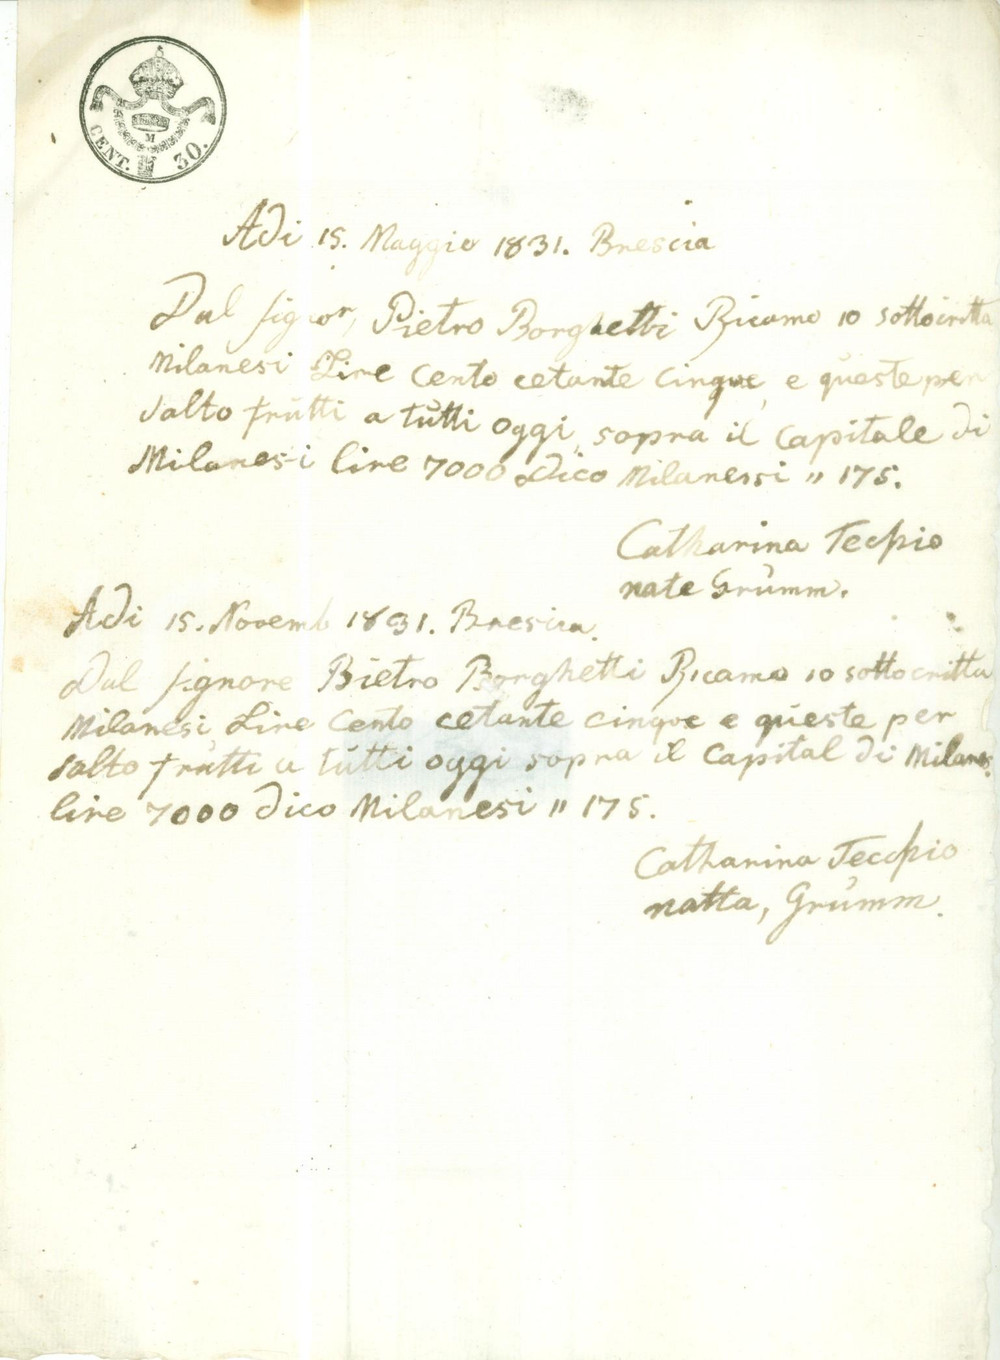 M
CENT. 30.
Adi 15. Maggio 1831. Brescia
Dal signor, Pietro Borghetti Ricamo io sottocritta
Milanesi Lire Cento cetante cinque, e queste per
salto frutti a tutti oggi sopra il capitale di
Milanesi lire 7000 Dico Milanessi " 175.
Catharina Tecchio
nate Grŭmm.
Adi 15. Novemb 1831. Brescia.
Dal signore Bietro Borghetti Ricamo io sottocritta
Milanesi Lire Cento cetante cinque e queste per
salto frutti a tutti oggi sopra il Capital di Milanes.
lire 7000 dico Milanesi " 175.
Catharina Tecchio
natta, Grŭmm.